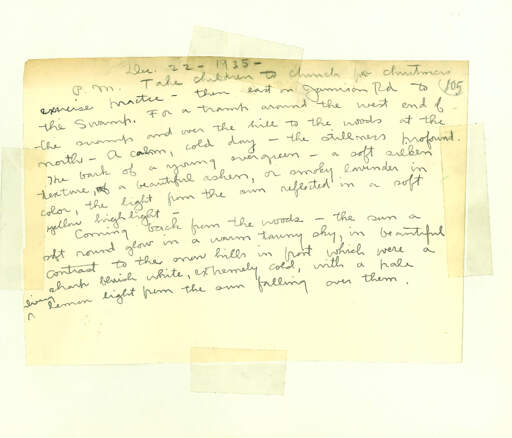 Dec. 22 - 1935 -
P.M. Take children to church for christmas
exercise practce - then east on Jamison Rd to 105
the Swamp. For a tramp around the west end of
the swamp and over the hill to the woods at the
north - A calm, cold day - the stillness profound.
The bark of a young evergreen - a soft silken
texture, of a beautiful ashen, or smoky lavender in
color, the light from the sun reflected in a soft
yellow highlight -
Coming back from the woods - the sun a
soft round glow in a warm tawny sky, in beautiful
contrast to the snow hills in front which were a
sharp bluish white, extremely cold, with a pale
lemon light from the sun falling over them.